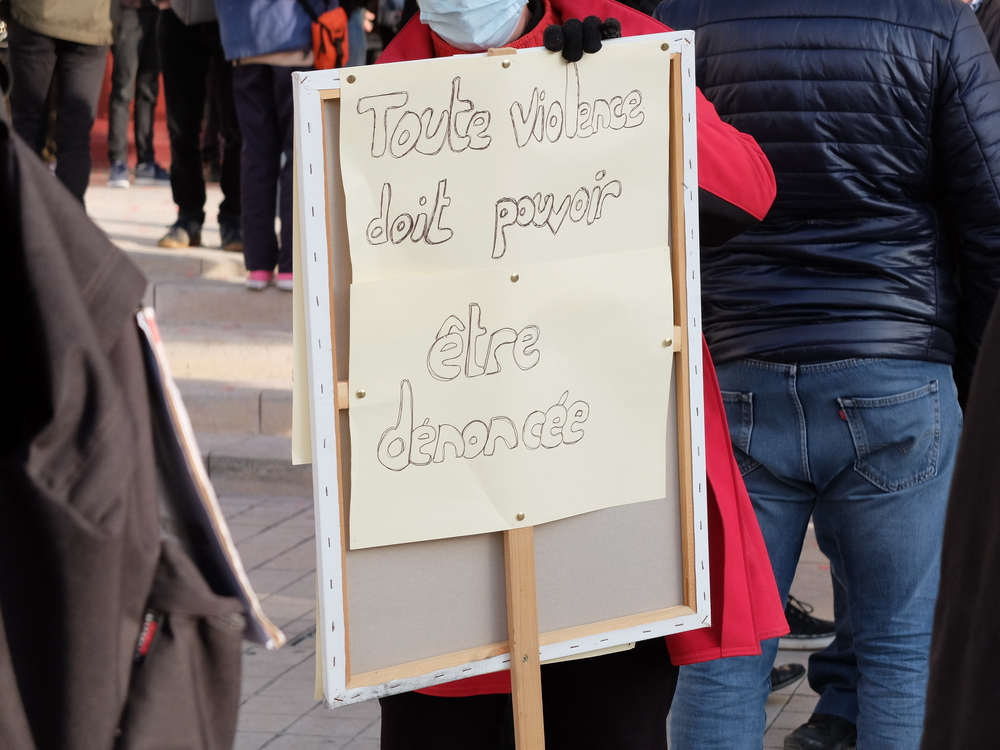 Toute violence
doit pouvoir
être
dénoncée